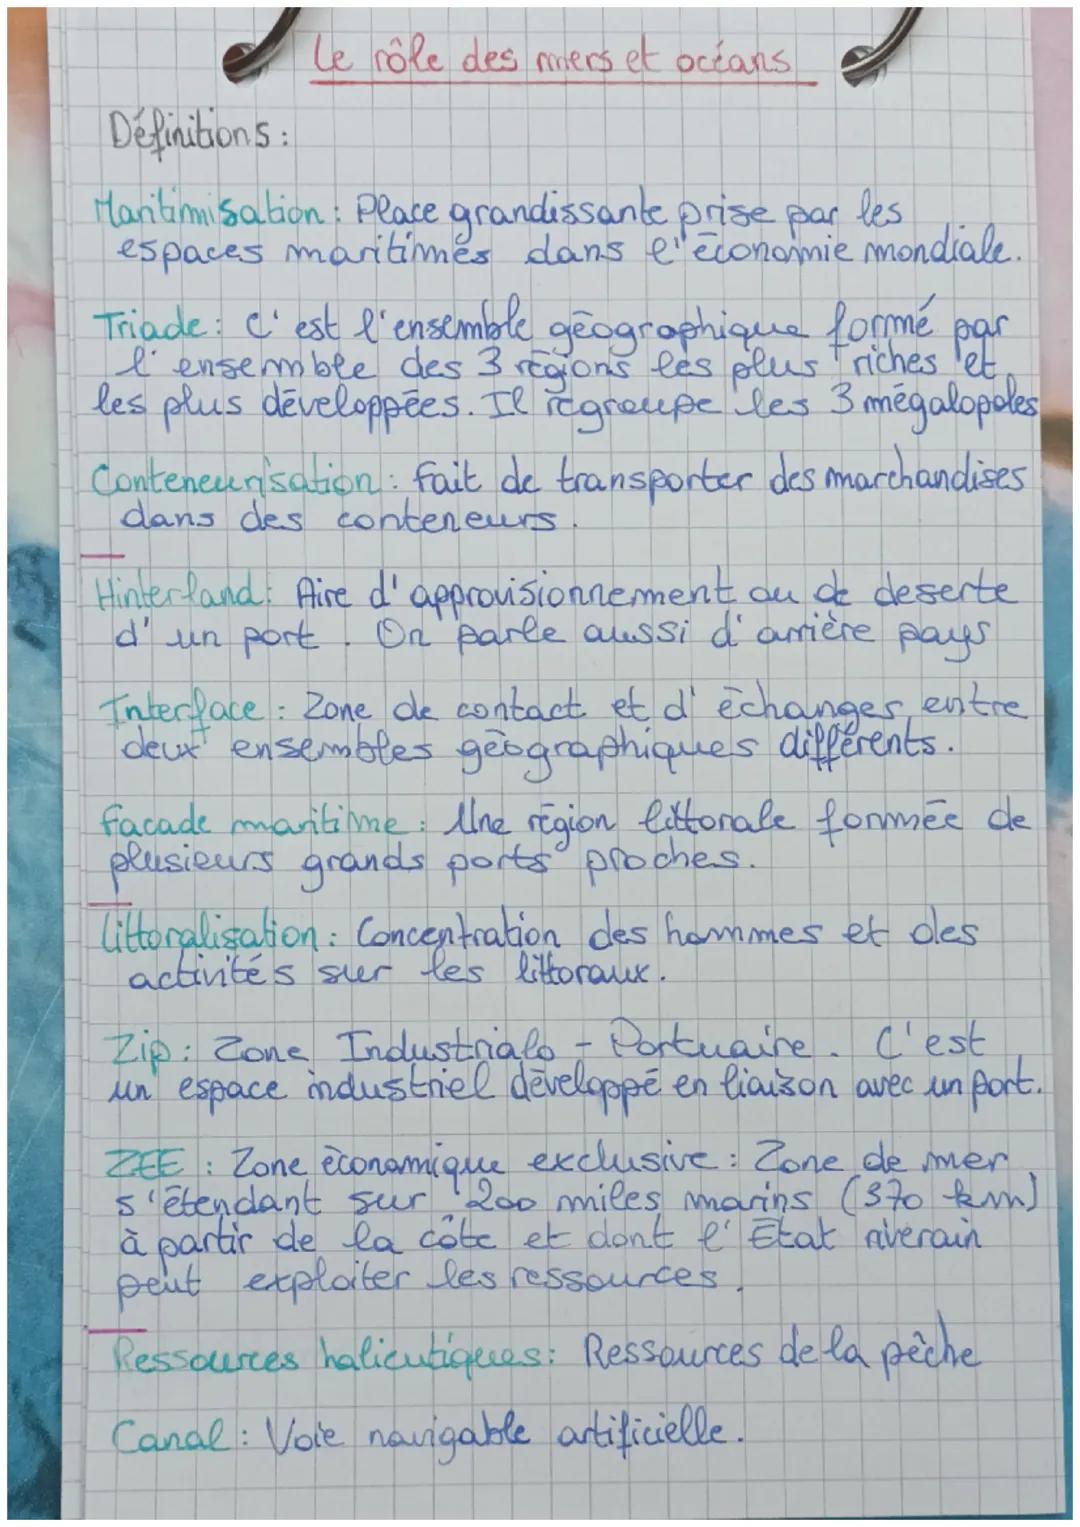 Le rôle des mers et océans
Définitions :
Maritimisation : Place grandissante prise par les
espaces maritimes dans l'économie mondiale.
Triade : C'est l'ensemble géographique formé par
l'ensemble des 3 régions les plus riches et
les plus développées. Il regroupe les 3 mégalopoles
Conteneurisation : fait de transporter des marchandises
dans des conteneurs.
Hinterland : Aire d'approvisionnement ou de deserte
d'un port. On parle aussi d'arrière pays
Interface : Zone de contact et d'échanges entre
deux ensembles géographiques différents.
facade maritime : Une région littorale formée de
plusieurs grands ports proches.
Littoralisation : Concentration des hommes et des
activités sur les littoraux.
Zip : Zone Industrialo - Portuaire. C'est
un espace industriel développé en liaison avec un port.
ZEE : Zone économique exclusive : Zone de mer
s'étendant sur 200 miles marins (370 km)
à partir de la côte et dont l'État riverain
peut exploiter les ressources.
Ressources halieutiques : Ressources de la pêche
Canal : Voie navigable artificielle.